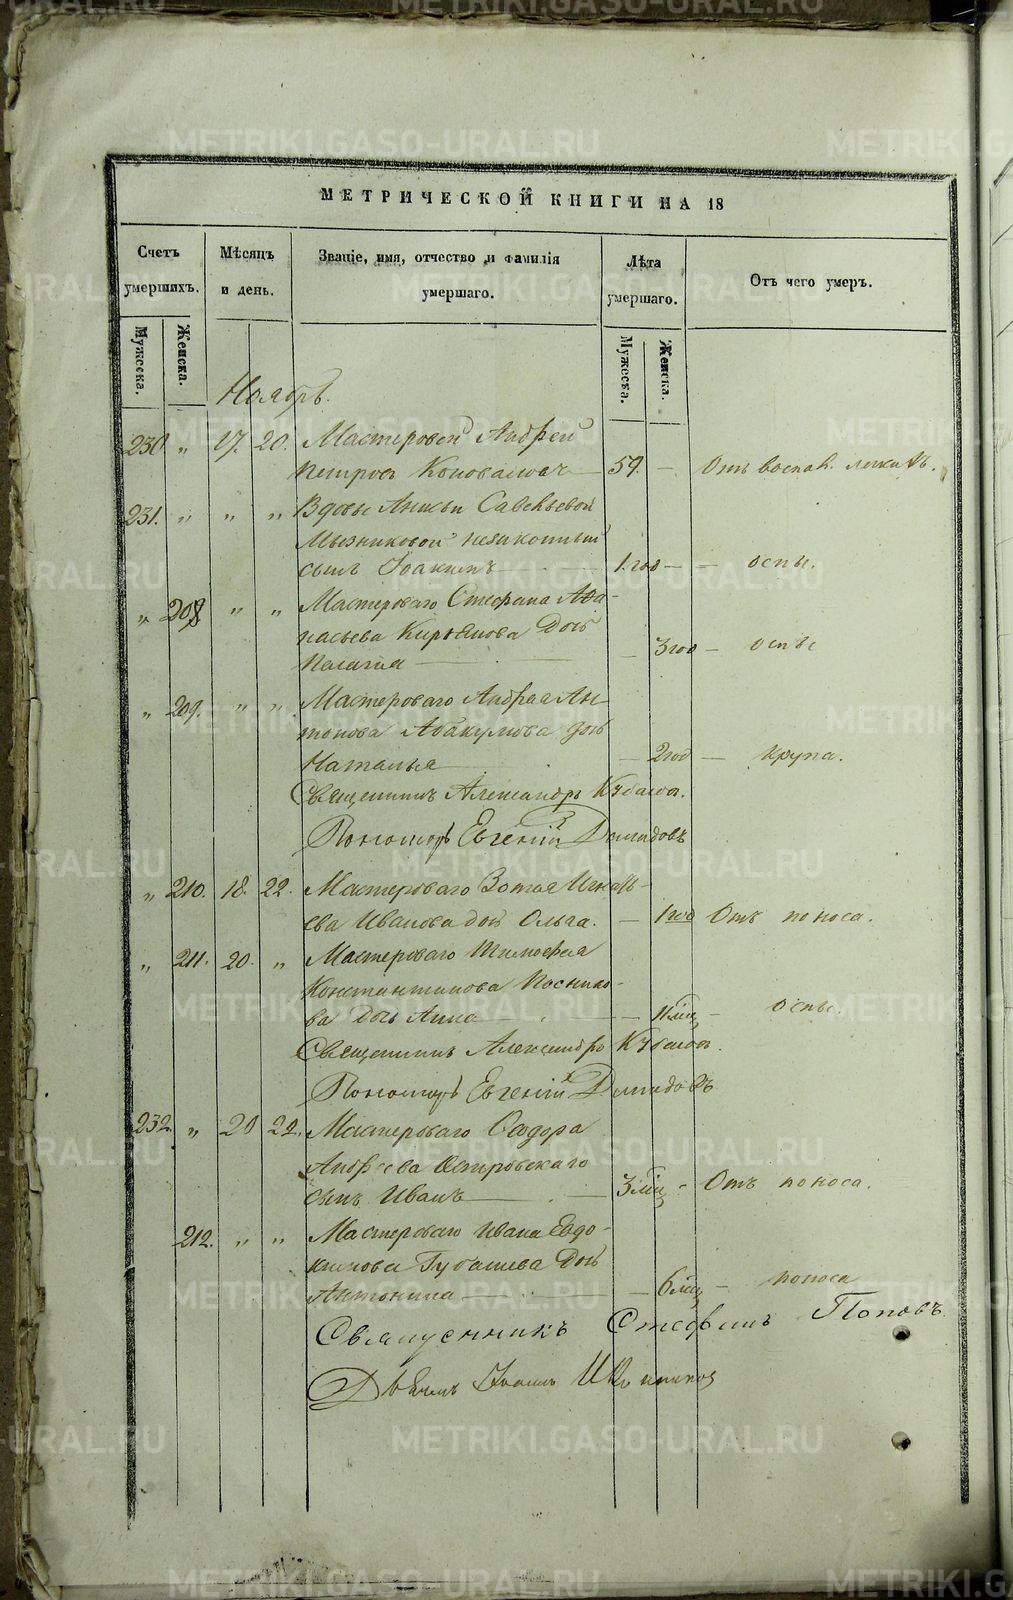 МЕТРИЧЕСКОЙ КНИГИ НА 18
Счетъ умершихъ.
Мѣсяцъ и день.
Званіе, имя, отчество и фамилія умершаго.
Лѣта умершаго.
Отъ чего умеръ.
Мужеска.
Женска.
Мужеска.
Женска.
Ноябрь.
230. " 17. 20. Мастеровой Андрей
Петровъ Коноваловъ 59. — Отъ воспал. легкихъ.
231. " " " Вдовы Анисьи Савельевой
Мызниковой незаконный
сынъ Іоакимъ 1 год — оспы.
" 208 " " Мастероваго Стефана Афа-
насьева Кирьянова дочь
Пелагія — 3 год — оспы
" 209. " " Мастероваго Андрея Ан-
тонова Абакумова дочь
Наталья — 2 год — крупа.
Священникъ Александръ
Пономарь Евгеній Демидовъ
" 210. 18. 22. Мастероваго Зотея Игнать-
ева Иванова дочь Ольга. — 1 год Отъ поноса.
" 211. 20. " Мастероваго Тимофея
Константинова Посньо-
ва дочь Анна — 11 мѣц — оспы.
Священникъ Александръ
Пономарь Евгеній Демидовъ
232. " 20 22. Мастероваго Сидора
Андреева Островскаго
сынъ Иванъ — 3 мѣц — Отъ поноса.
212. " " Мастероваго Ивана Евдо-
кимова дочь
Антонина — 6 мѣц — поноса
Священникъ Стефанъ Поповъ.
Дьячекъ Іоаннъ
METRIKI.GASO-URAL.RU